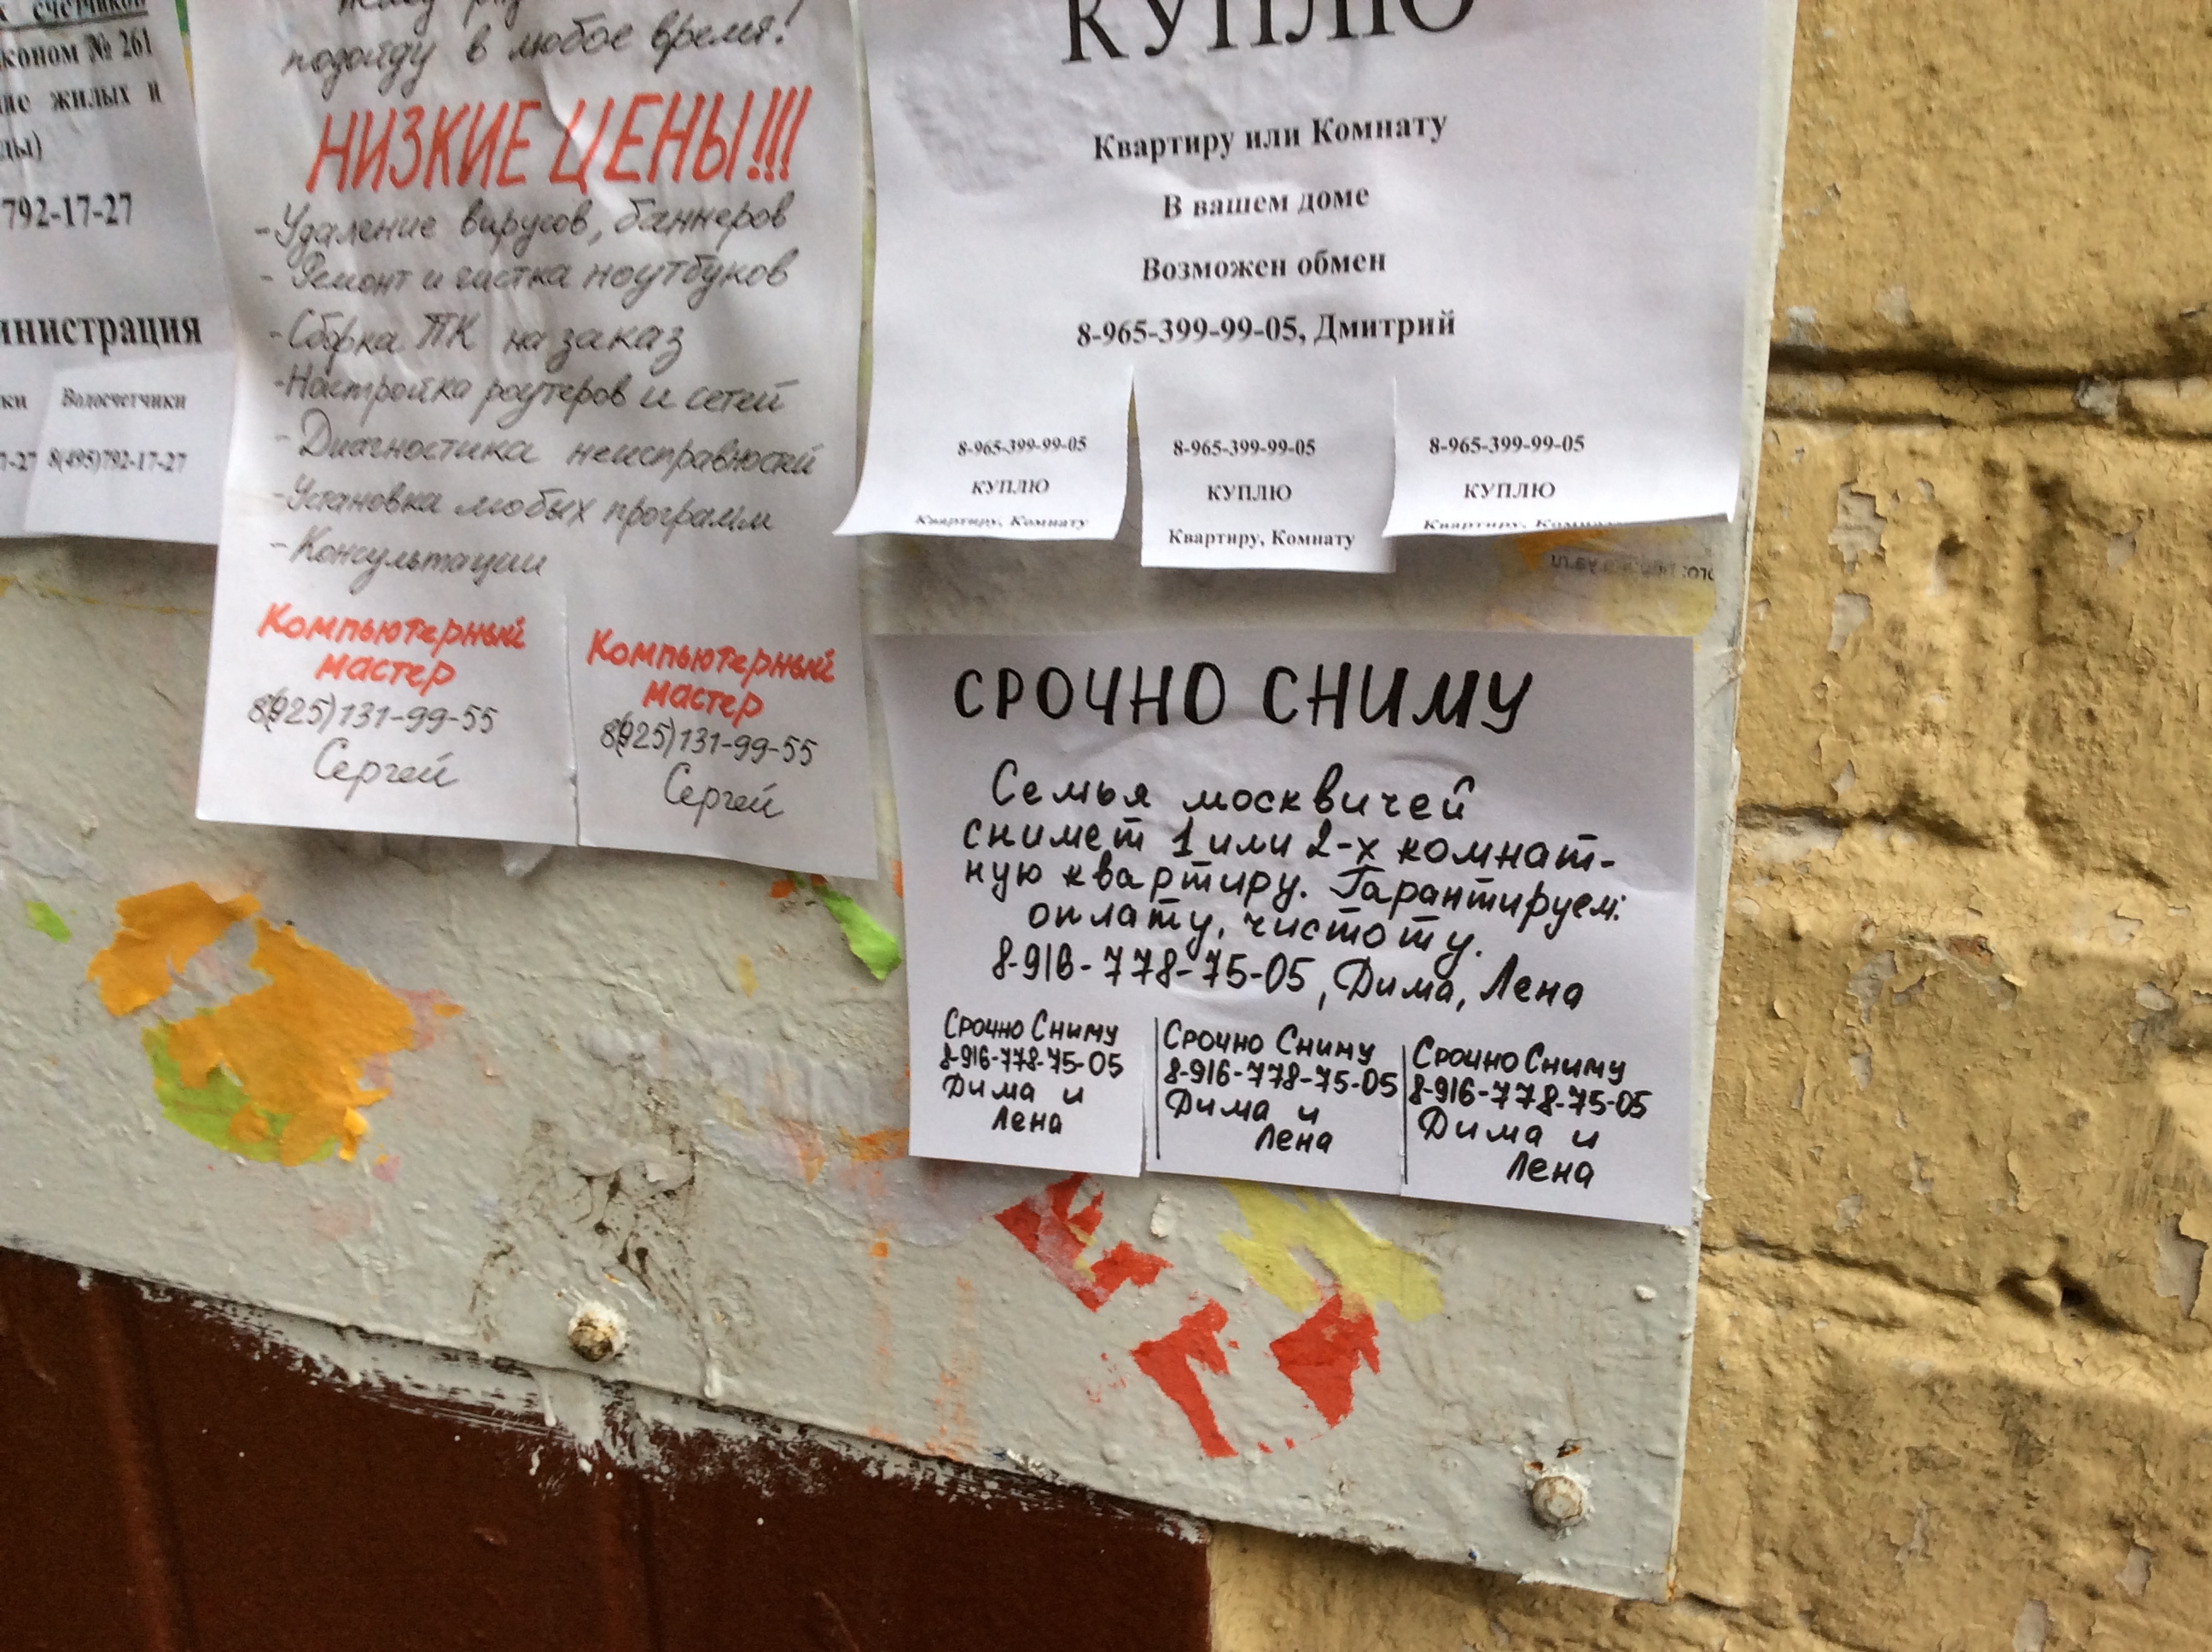 х счетчиков
коном № 261
ие жилых и
ды)
792-17-27
инистрация
ки
7-27
Водосчетчики
8(495)792-17-27
подойду в любое время!
НИЗКИЕ ЦЕНЫ!!!
-Удаление вирусов, баннеров
- Ремонт и чистка ноутбуков
-Сборка ПК на заказ
-Настройка роутеров и сетей
- Диагностика неисправностей
-Установка любых программ
-Консультации
Компьютерный
мастер
8(925)131-99-55
Сергей
Компьютерный
мастер
8(925)131-99-55
Сергей
КУПЛЮ
Квартиру или Комнату
В вашем доме
Возможен обмен
8-965-399-99-05, Дмитрий
8-965-399-99-05
КУПЛЮ
Квартиру, Комнату
8-965-399-99-05
КУПЛЮ
Квартиру, Комнату
8-965-399-99-05
КУПЛЮ
Квартиру, Комнату
СРОЧНО СНИМУ
Семья москвичей
снимет 1 или 2-х комнат-
ную квартиру. Гарантируем:
оплату, чистоту.
8-916-778-75-05, Дима, Лена
Срочно Сниму
8-916-778-75-05
Дима и
Лена
Срочно Сниму
8-916-778-75-05
Дима и
Лена
Срочно Сниму
8-916-778-75-05
Дима и
Лена